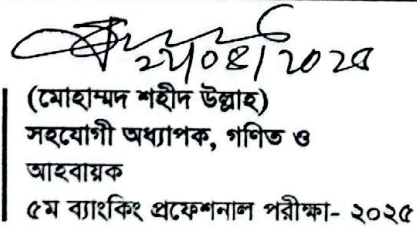 ২২/০৪/২০২৫
(মোহাম্মদ শহীদ উল্লাহ)
সহযোগী অধ্যাপক, গণিত ও
আহবায়ক
৫ম ব্যাংকিং প্রফেশনাল পরীক্ষা- ২০২৫